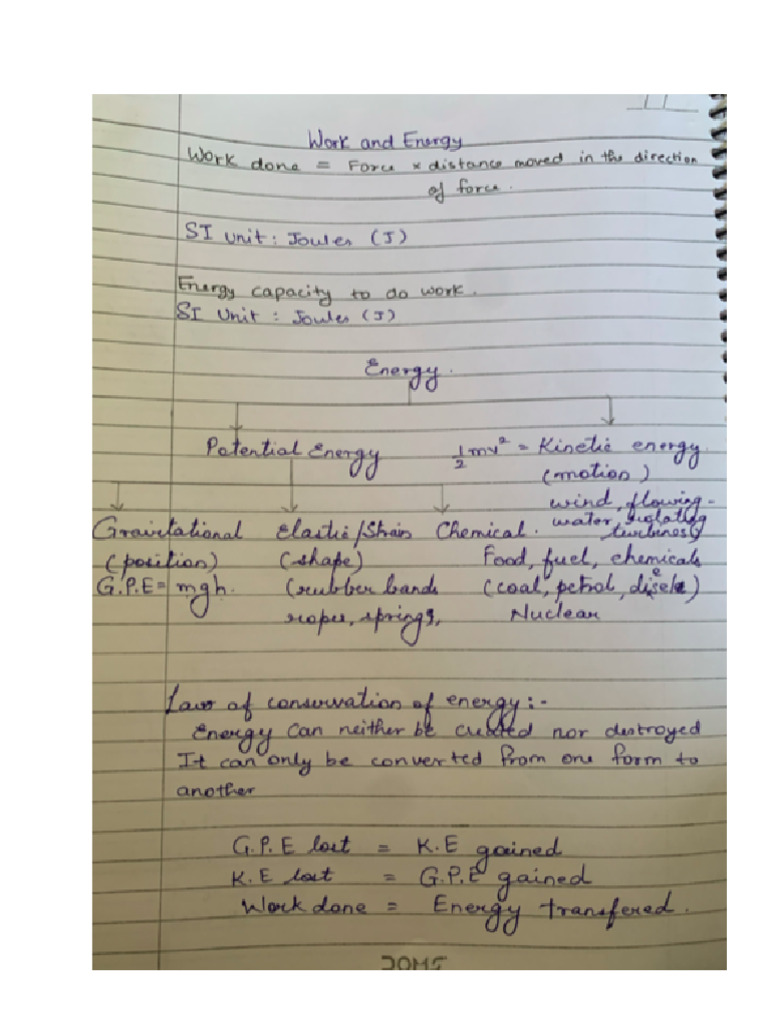 Work and Energy
Work done = Force × distance moved in the direction
of force.
SI unit: Joules (J)
Energy capacity to do work.
SI Unit : Joules (J)
Energy.
Potential Energy ½mv² = Kinetic energy.
(motion)
wind, flowing-
Gravitational Elastic/Strain Chemical. water, rotating
turbines)
(position) (shape) Food, fuel, chemicals
G.P.E = mgh. (rubber bands (coal, petrol, disele)
ropes, springs, Nuclear
Law of conservation of energy:-
Energy can neither be created nor destroyed
It can only be converted from one form to
another
G.P.E lost = K.E gained
K.E lost = G.P.E gained
Work done = Energy transfered.
DOMS